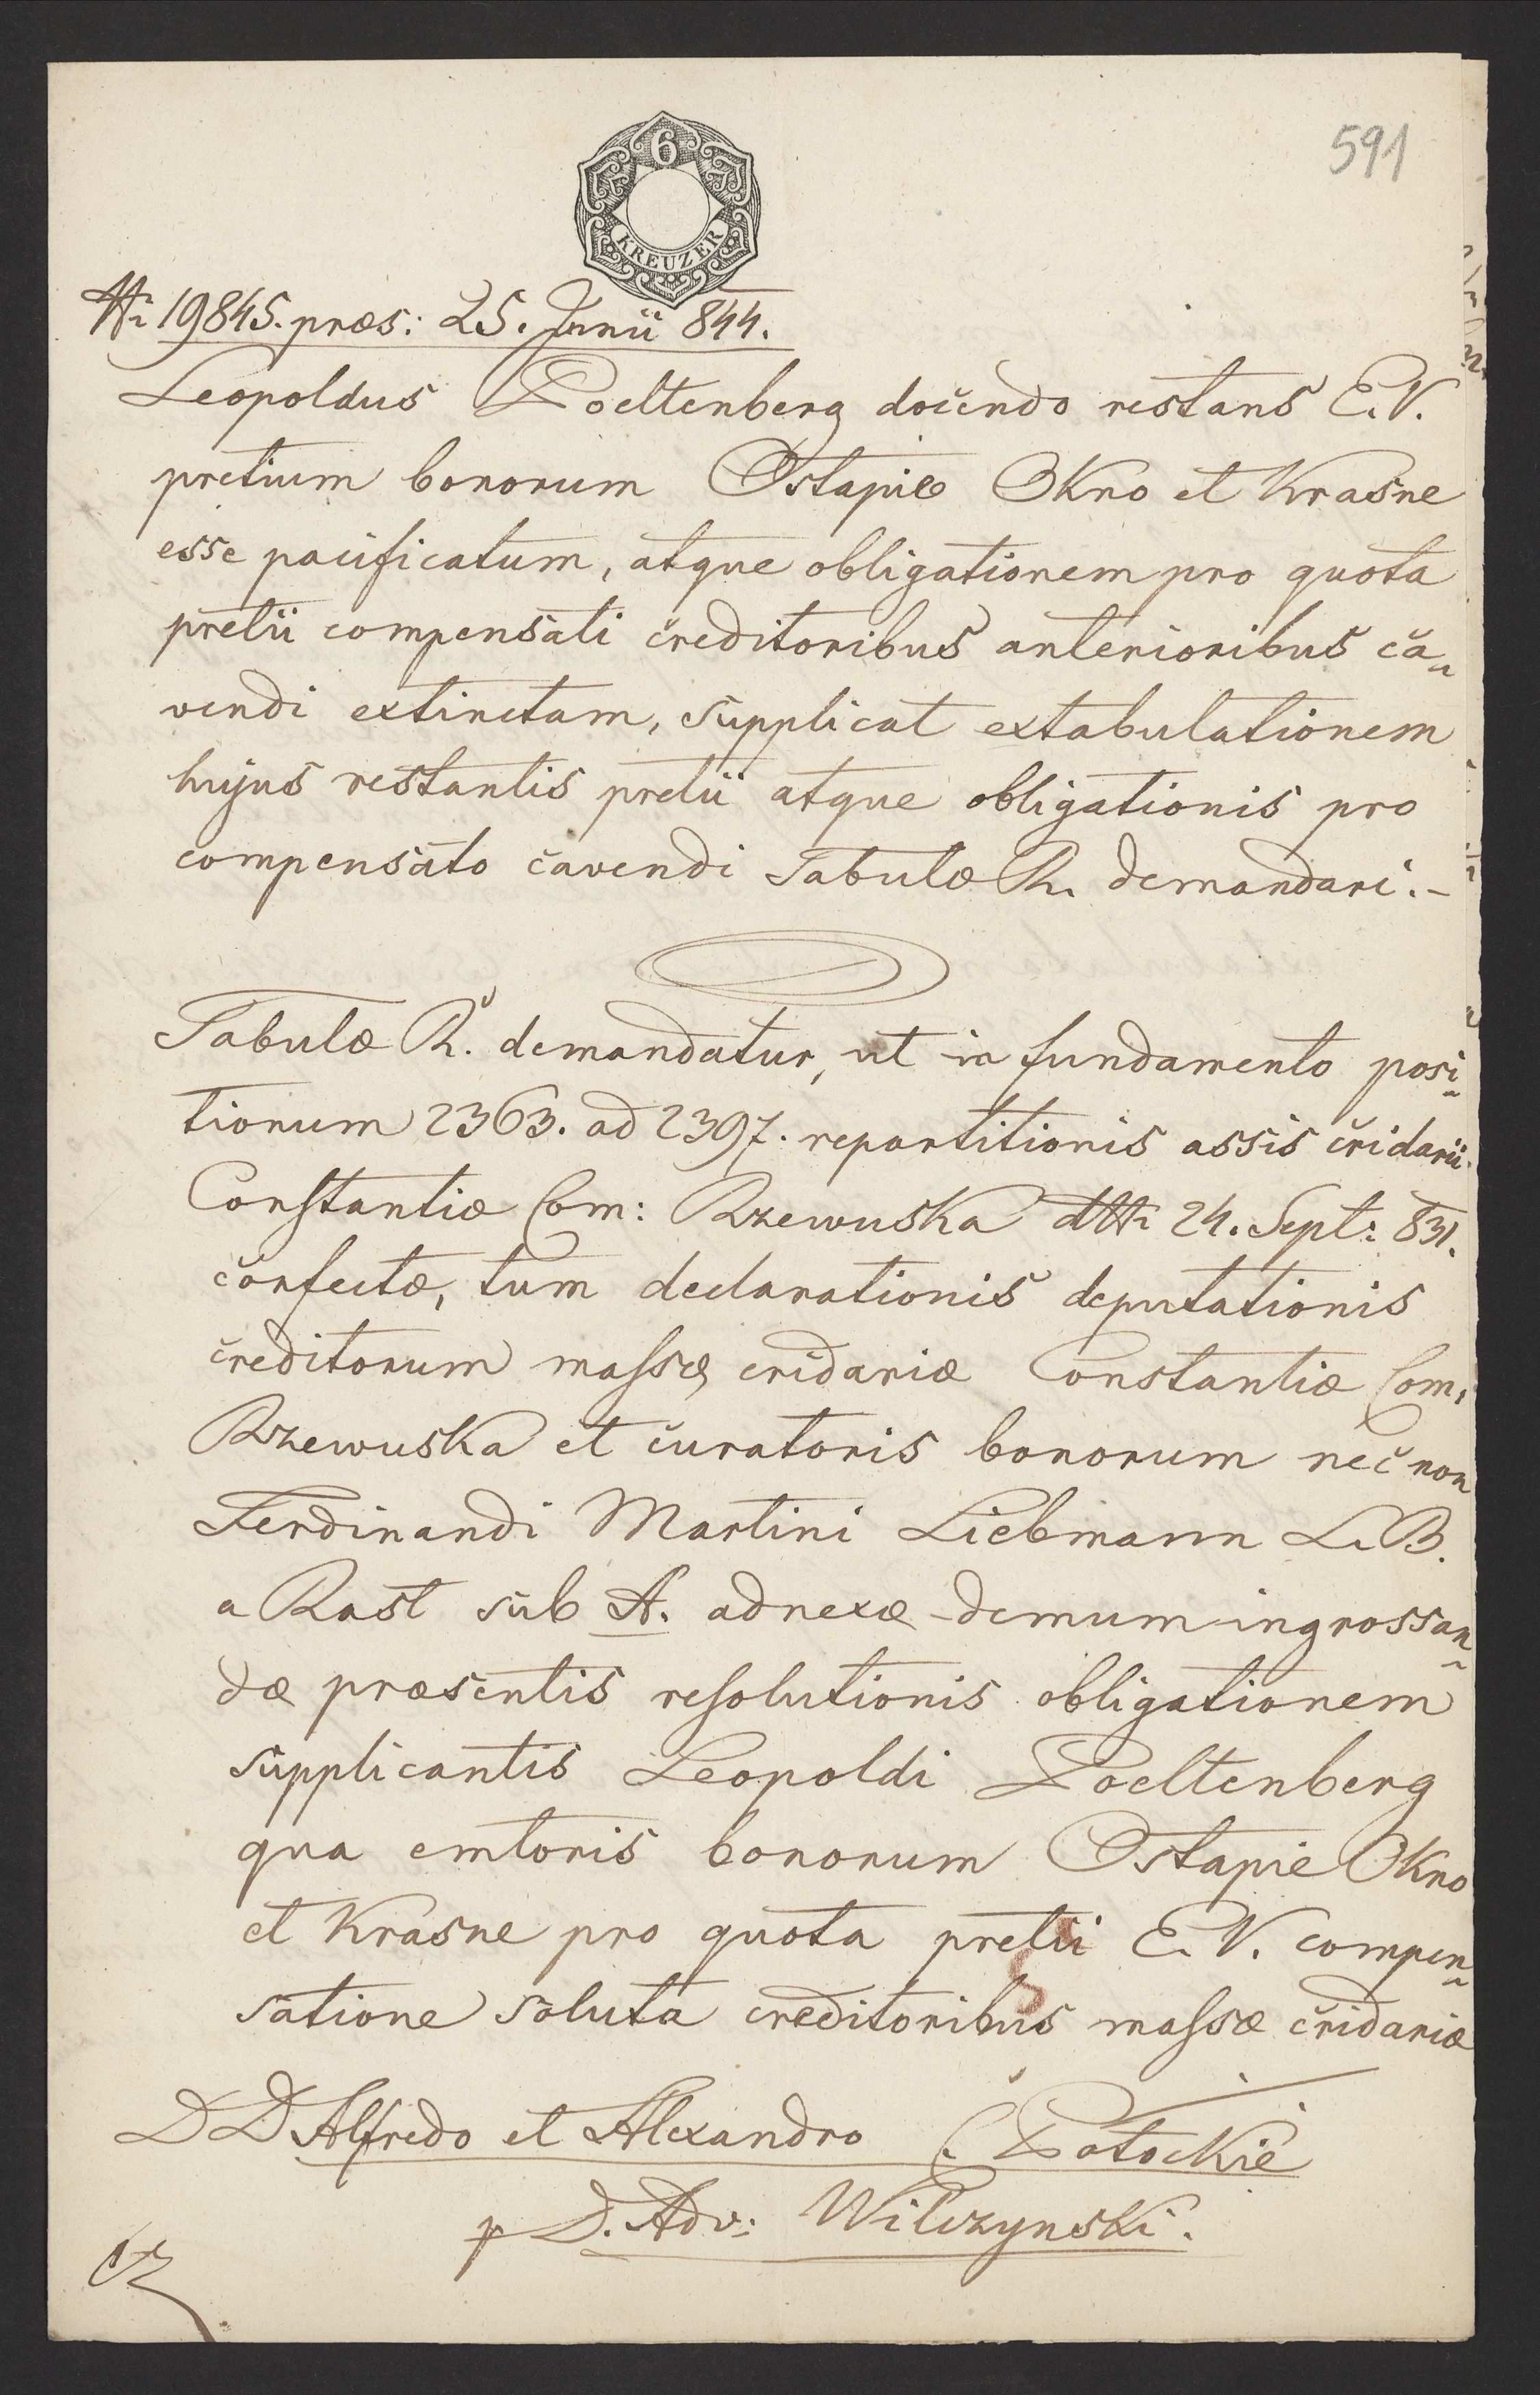 591
6
KREUZER
Nr 19845. præs: 25. Junii 844.
Leopoldus Poeltenberg docendo restans E. V.
pretium bonorum Ostapie Okno et Krasne
esse pacificatum, atque obligationem pro quota
pretii compensati creditoribus anterioribus ca-
vendi extinctam, supplicat extabulationem
hujus restantis pretii atque obligationis pro
compensato cavendi Tabulæ R. demandari.-
Tabulæ R. demandatur, ut in fundamento posi-
tionum 2363. ad 2397. repartitionis assis cridarii
Constantiæ Com: Rzewuska dtto 24. Sept: 831.
confectæ, tum declarationis deputationis
creditorum massæ cridariæ Constantiæ Com.
Rzewuska et curatoris bonorum nec non
Ferdinandi Martini Liebmann L. B.
a Rast sub A. adnexæ demum ingrossan-
dæ præsentis resolutionis obligationem
supplicantis Leopoldi Poeltenberg
qua emtoris bonorum Ostapie Okno
et Krasne pro quota pretii E. V. compen-
satione soluta creditoribus massæ cridariæ
DD Alfredo et Alexandro C. Potockie
p D. Adv: Wilczynski.